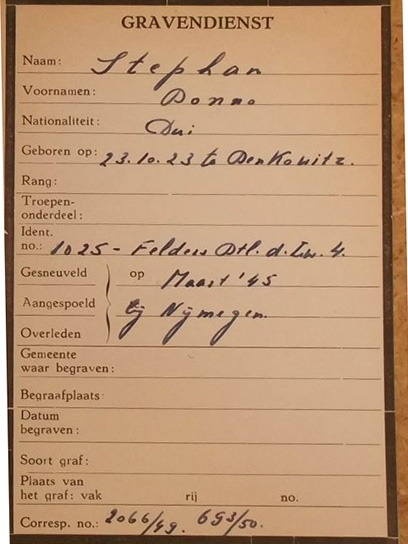 GRAVENDIENST
Naam: Stephan
Voornamen: Donno
Nationaliteit: Dui
Geboren op: 23.10.23 te Denkowitz.
Rang:
Troepen-
onderdeel:
Ident.
no.: 1025 - Felders Btl. d. Lw. 4.
Gesneuveld op Maart '45
Aangespoeld bij Nijmegen.
Overleden
Gemeente
waar begraven:
Begraafplaats:
Datum
begraven:
Soort graf:
Plaats van
het graf: vak rij no.
Corresp. no.: 2066/49. 693/50.